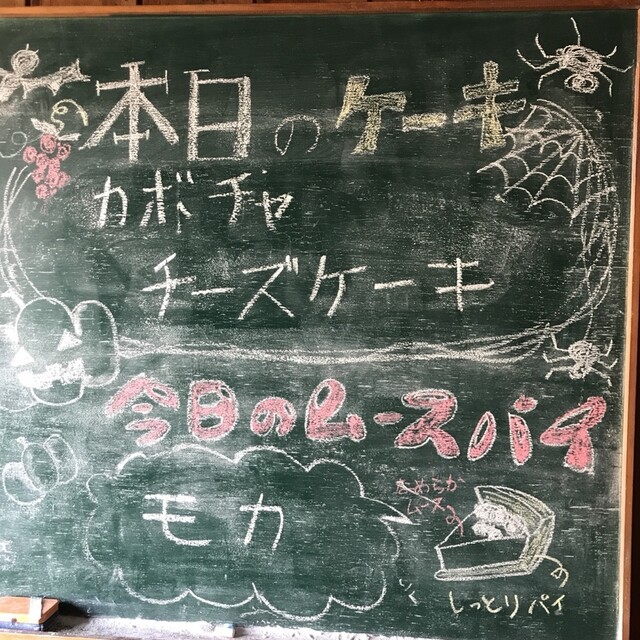 本日のケーキ
カボチャ
チーズケーキ
今日のムースパイ
モカ
なめらか
ムース
の
しっとりパイ